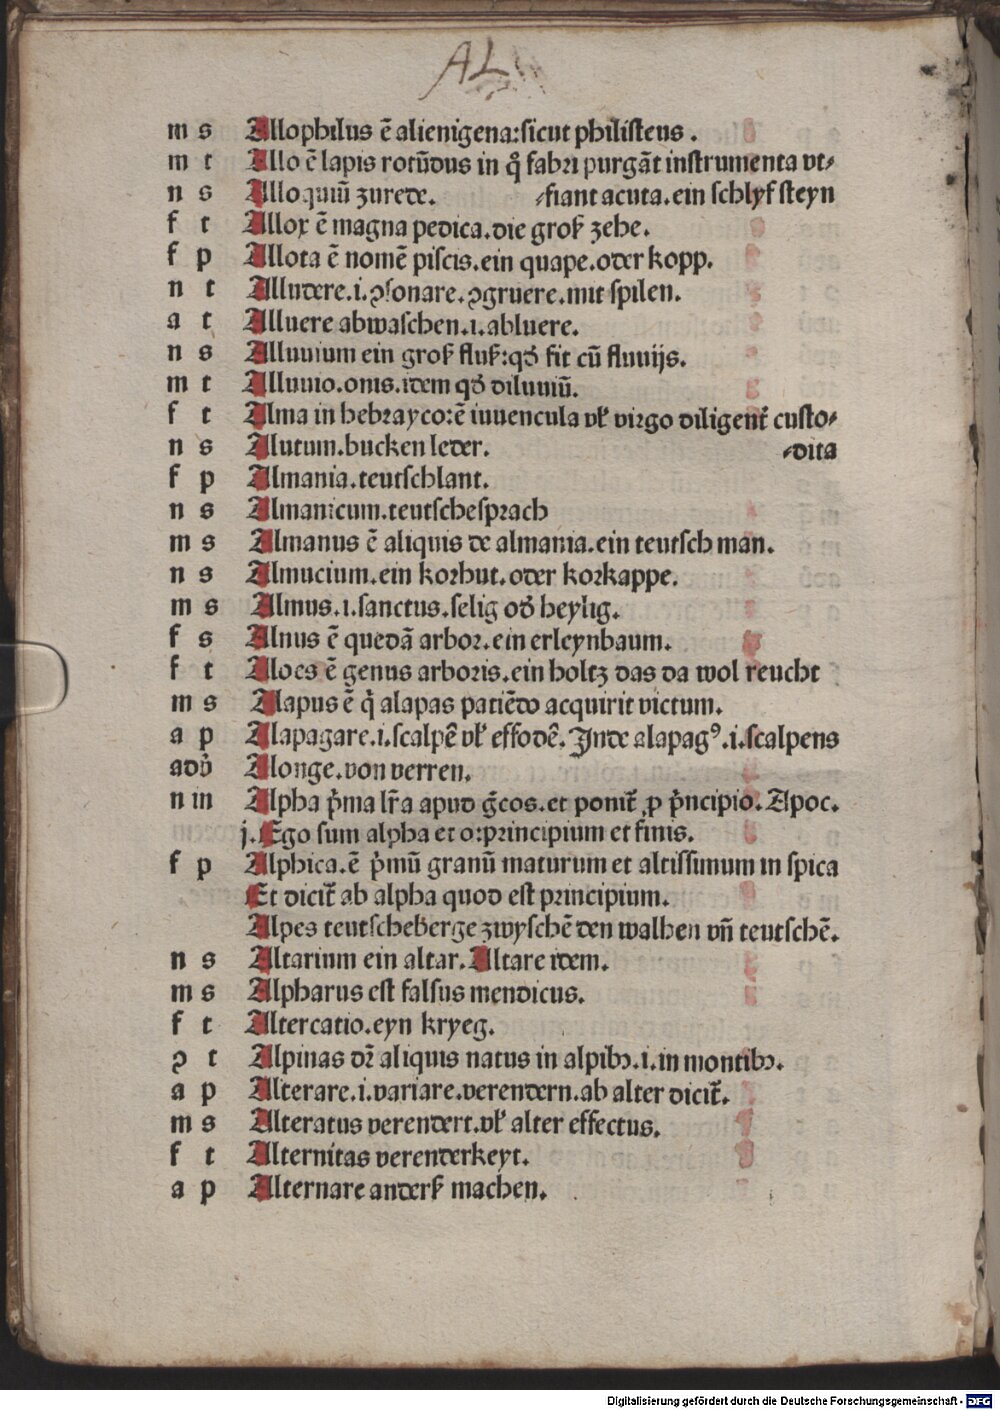 AL
m s Allophilus ē alienigena:sicut philisteus .
m t Allo ē lapis rotūdus in q̄ fabri purgāt instrumenta vt⸗
n s Alloquiū zurede. ⸗fiant acuta. ein schlyf steyn
f t Allox ē magna pedica.die groß zehe.
f p Allota ē nomē piscis.ein quape.oder kopp.
n t Alludere.i.ꝯsonare.ꝯgruere.mit spilen.
a t Alluere abwaschen.i.abluere.
n s Alluuium ein groß fluß:qđ fit cū fluuijs.
m t Alluuio.onis.idem qđ diluuiū.
f t Alma in hebrayco:ē iuuencula vł virgo diligent̄ custo⸗
n s Alutum.bucken leder. ⸗dita
f p Almania.teutschlant.
n s Almanicum.teutschesprach
m s Almanus ē aliquis de almania.ein teutsch man.
n s Almucium.ein korhut.oder korkappe.
m s Almus.i.sanctus.selig ođ heylig.
f s Alnus ē quedā arbor.ein erleynbaum.
f t Aloes ē genus arboris.ein holtz das da wol reucht
m s Alapus ē q̇ alapas patiēdo acquirit victum.
a p Alapagare.i.scalpē vł effodē.Inde alapagꝰ.i.scalpens
adv̄ Alonge.von verren.
n in Alpha p̄ma lr̄a apud ḡcos.et ponit̄ ꝓ p̄ncipio.Apoc.
j. Ego sum alpha et o:principium et finis.
f p Alphica.ē p̄mū granū maturum et altissimum in spica
Et dicit̄ ab alpha quod est principium.
Alpes teutscheberge zwyschē den walhen vn̄ teutschē.
n s Altarium ein altar.Altare idem.
m s Alpharus est falsus mendicus.
f t Altercatio.eyn kryeg.
ꝯ t Alpinas dr̄ aliquis natus in alpibꝫ.i.in montibꝫ.
a p Alterare.i.variare.verendern.ab alter dicit̄.
m s Alteratus verendert.vł alter effectus.
f t Alternitas verenderkeyt.
a p Alternare anderß machen.
Digitalisierung gefördert durch die Deutsche Forschungsgemeinschaft - DFG